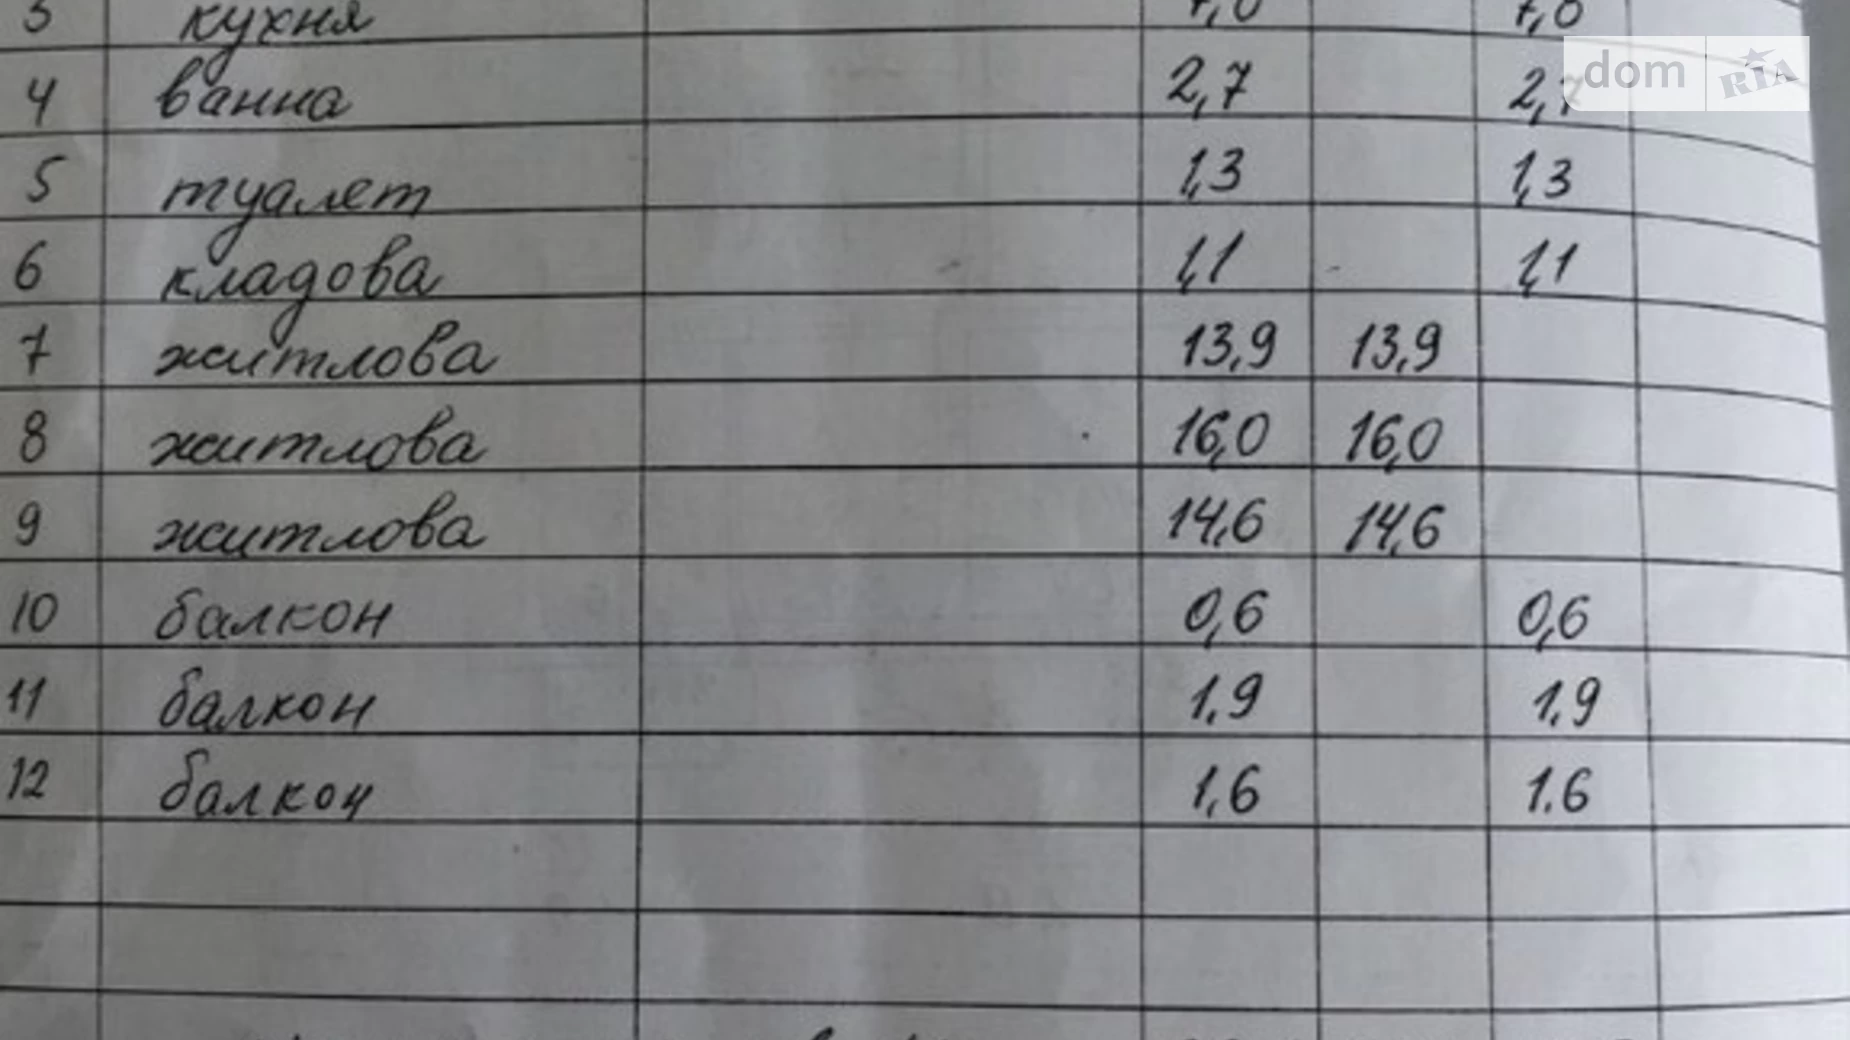 3 кухня
4 ванна 2,7 2,7
5 туалет 1,3 1,3
6 кладова 1,1 1,1
7 житлова 13,9 13,9
8 житлова 16,0 16,0
9 житлова 14,6 14,6
10 балкон 0,6 0,6
11 балкон 1,9 1,9
12 балкон 1,6 1.6
dom RIA